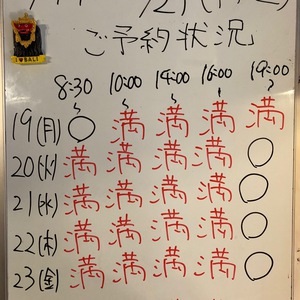 I ♥ BALI
ご予約状況
8:30 10:00 14:00 16:00 19:00
19(月) ○ 満 満 満 満
20(火) 満 満 満 満 ○
21(水) 満 満 満 満 ○
22(木) 満 満 満 満 ○
23(金) 満 満 満 満 ○